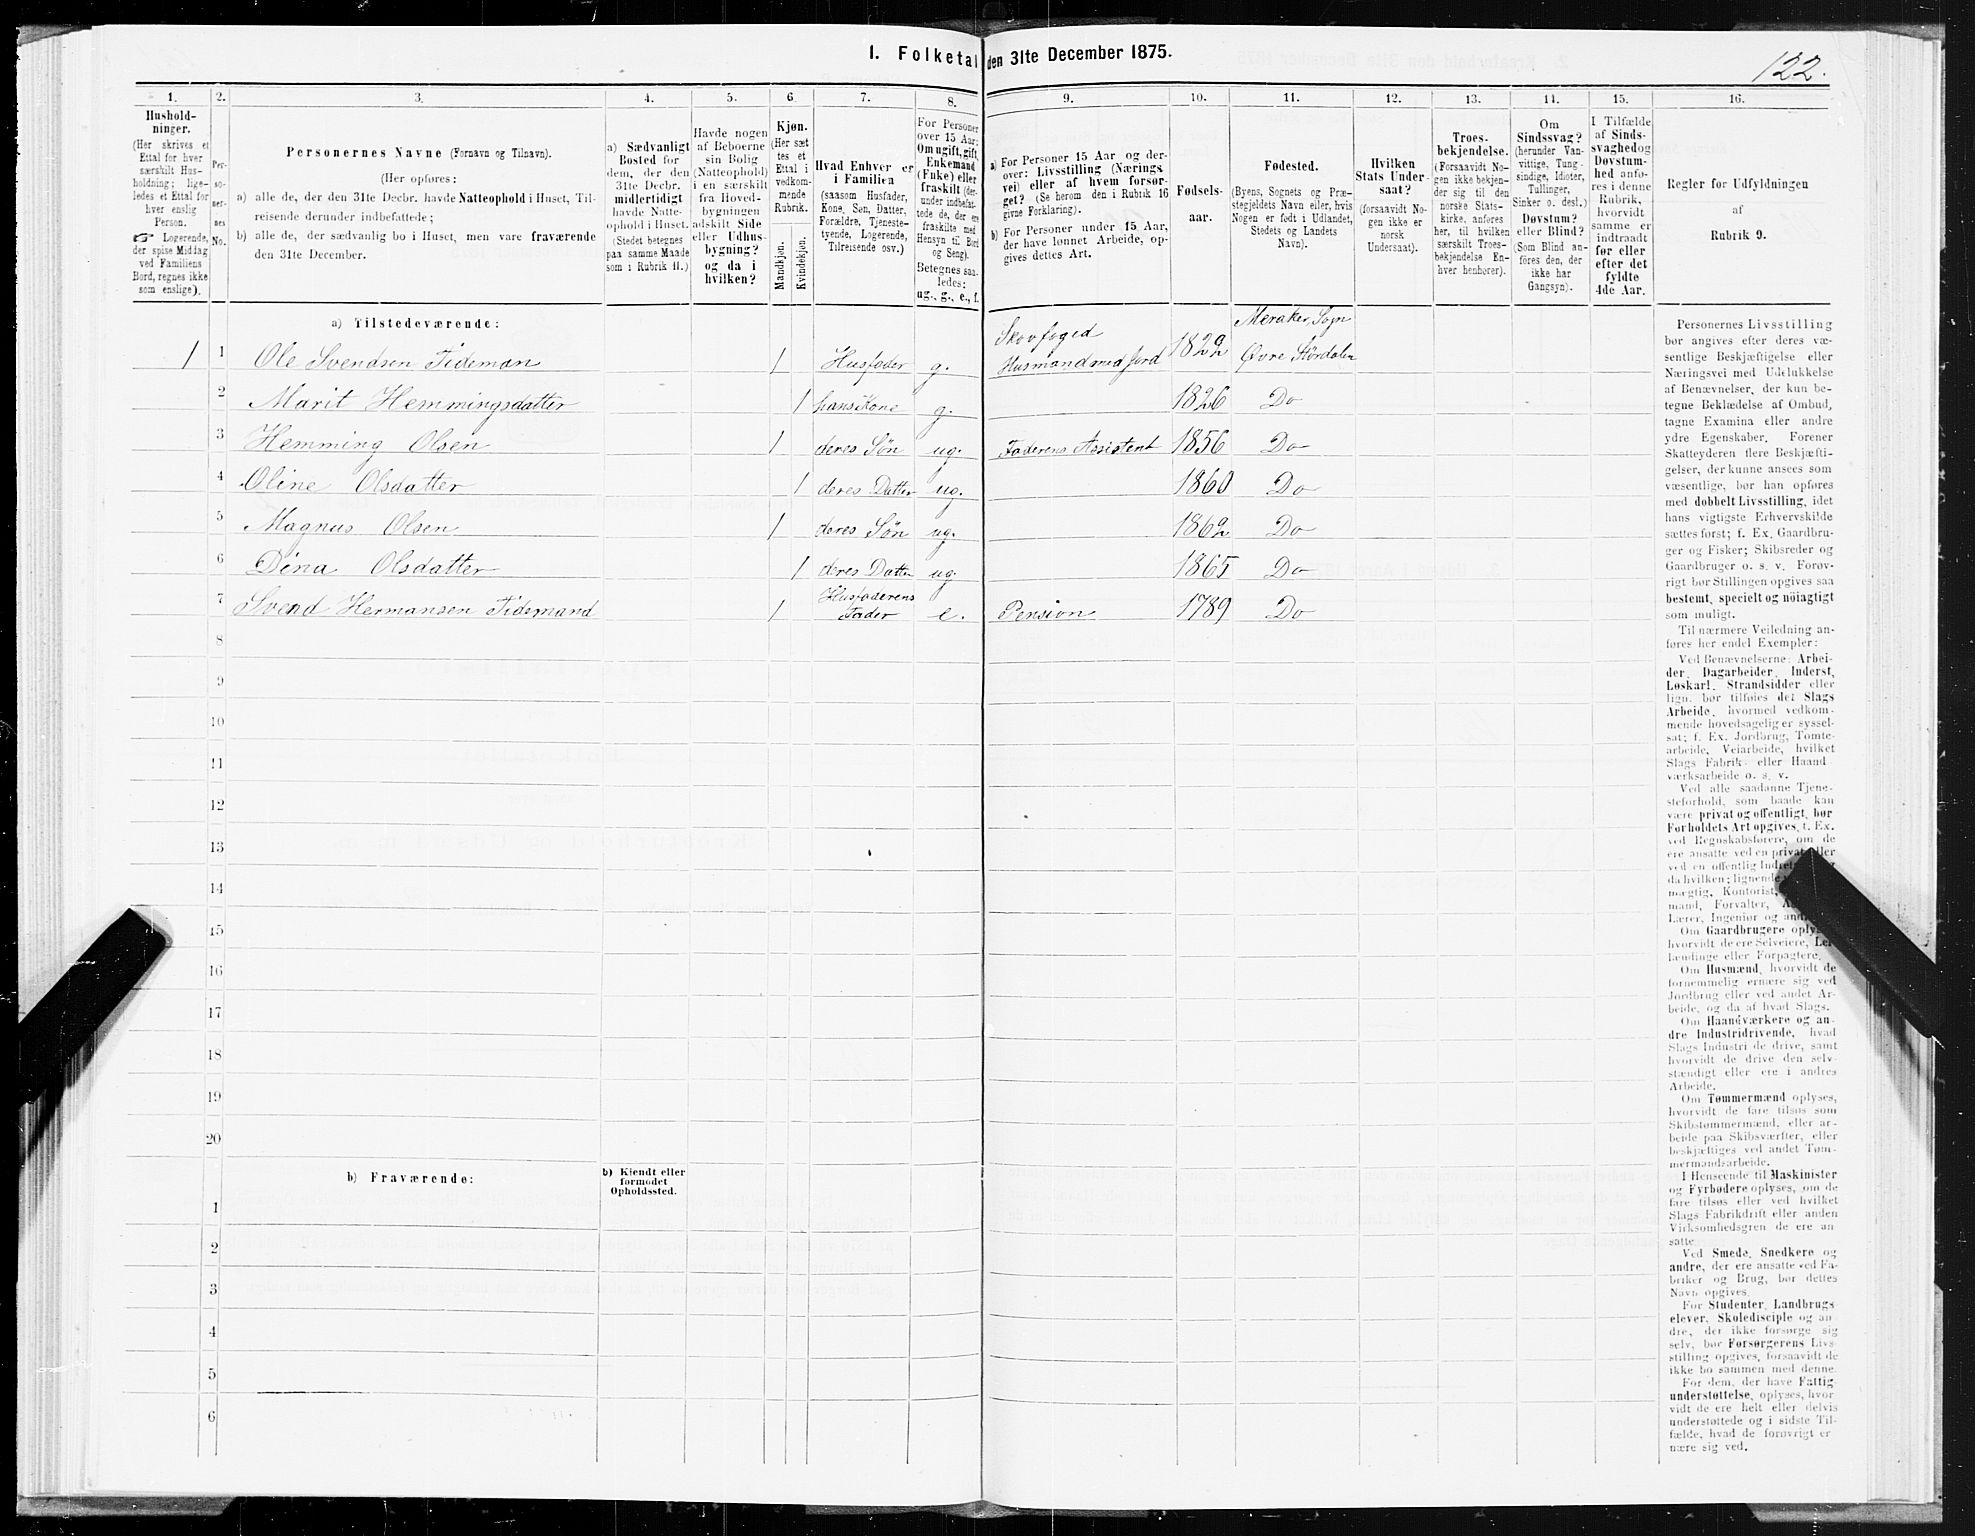 1. Folketal den 31te December 1875.
122.
1. 2. 3. 4. 5. 6. 7. 8. 9. 10. 11. 12. 13. 14. 15. 16.
Hushold-
ninger.
(Her skrives et
Ettal for hver
særskilt Hus-
holdning; lige-
ledes et Ettal for
hver enslig
Person.
☞ Logerende,
der spise Middag
ved Familiens
Bord, regnes ikke
som enslige).
Per-
so-
ner-
nes
No.
Personernes Navne (Fornavn og Tilnavn).
(Her opføres:
a) alle de, der den 31te Decbr. havde Natteophold i Huset, Til-
reisende derunder indbefattede;
b) alle de, der sædvanlig bo i Huset, men vare fraværende
den 31te December.
a) Sædvanligt
Bosted for
dem, der den
31te Decbr.
midlertidigt
havde Natte-
ophold i Huset.
(Stedet betegnes
paa samme Maade
som i Rubrik 11.)
Havde nogen
af Beboerne
sin Bolig
(Natteophold)
i en særskilt
fra Hoved-
bygningen
adskilt Side
eller Udhus-
bygning?
og da i
hvilken?
Kjøn.
(Her sæt
tes et
Ettal i
vedkom-
mende
Rubrik.
Mandkjøn.
Kvindekjøn.
Hvad Enhver er
i Familien
(saasom Husfader,
Kone, Søn, Datter,
Forældre, Tjeneste-
tyende, Logerende,
Tilreisende osv.)
For Personer
over 15 Aar:
Om ugift, gift,
Enkemand
(Enke) eller
fraskilt (der-
under indbefat-
tede de, der ere
fraskilte med
Hensyn til Bord
og Seng).
Betegnes saa-
ledes:
ug., g., e., f.
a) For Personer 15 Aar og der-
over: Livsstilling (Nærings-
vei) eller af hvem forsør-
get? (Se herom den i Rubrik 16
givne Forklaring).
b) For Personer under 15 Aar,
der have lønnet Arbeide, op-
gives dettes Art.
Fødsels-
aar.
Fødested.
(Byens, Sognets og Præ-
stegjeldets Navn eller, hvis
Nogen er født i Udlandet,
Stedets og Landets
Navn).
Hvilken
Stats Under-
saat?
(forsaavidt No-
gen ikke er
norsk
Undersaat).
Troes-
bekjendelse.
(Forsaavidt No-
gen ikke bekjen-
der sig til den
norske Stats-
kirke, anføres
her, til hvilken
særskilt Troes-
bekjendelse En-
hver henhører).
Om
Sindssvag?
(herunder Van-
vittige, Tung-
sindige, Idioter,
Tullinger,
Sinker o. desl.)
Døvstum?
eller Blind?
(Som Blind an-
føres den, der
ikke har
Gangsyn).
I Tilfælde
af Sinds-
svaghed og
Døvstum-
hed anfø-
res i denne
Rubrik,
hvorvidt
samme er
indtraadt
før eller
efter det
fyldte
4de Aar.
Regler for Udfyldningen
af
Rubrik 9.
a) Tilstedeværende:
1 1 Ole Svendsen Tideman 1 Husfader g. Skovfoged Husmand med Jord 1822 Meraker Sogn Øvre Stördalen
2 Marit Hemmingsdatter 1 hans Kone g. 1826 Do
3 Hemming Olsen 1 deres Søn ug. Faderens Assistent 1856 Do
4 Oline Olsdatter 1 deres Datter ug. 1860 Do
5 Magnus Olsen 1 deres Søn ug. 1862 Do
6 Dina Olsdatter 1 deres Datter ug. 1865 Do
7 Svend Hermansen Tidemand 1 Husfaderens Fader e. Pension 1789 Do
8
9
10
11
12
13
14
15
16
17
18
19
20
b) Fraværende:
b) Kjendt eller
formodet
Opholdssted.
1
2
3
4
5
6
Personernes Livsstilling
bør angives efter deres væ-
sentlige Beskjæftigelse eller
Næringsvei med Udelukkelse
af Benævnelser, der kun be-
tegne Beklædelse af Ombud,
tagne Examina eller andre
ydre Egenskaber. Forener
Skatteyderen flere Beskjæfti-
gelser, der kunne ansees som
væsentlige, bør han opføres
med dobbelt Livsstilling, idet
hans vigtigste Erhvervskilde
sættes først; f. Ex. Gaardbru-
ger og Fisker; Skibsreder og
Gaardbruger o. s. v. Forøv-
rigt bør Stillingen opgives saa
bestemt, specielt og nøiagtigt
som muligt.
Til nærmere Veiledning an-
føres her endel Exempler:
Ved Benævnelserne: Arbei-
der, Dagarbeider, Inderst,
Løskarl, Strandsidder eller
lign. bør tilføies det Slags
Arbeide, hvormed vedkom-
mende hovedsagelig er syssel-
sat; f. Ex. Jordbrug, Tomte-
arbeide, Veiarbeide, hvilket
Slags Fabrik- eller Haand-
værksarbeide o. s. v.
Ved alle saadanne Tjene-
steforhold, som baade kan
være privat og offentligt, bør
Forholdets Art opgives, f. Ex.
ved Regnskabsførere, om de
ere ansatte ved en privat eller
ved en offentlig
da hvilken; lignende
mægtig, Kontorist,
mand, Forvalter,
Lærer, Ingeniør og
Om Gaardbrugere
hvorvidt de ere Selveiere,
lændinge eller Forpagtere.
Om Husmænd, hvorvidt de
fornemmelig ernære sig ved
Jordbrug eller ved andet Ar-
beide, og da af hvad Slags.
Om Haandværkere og an-
dre Industridrivende, hvad
Slags Industri de drive, samt
hvorvidt de drive den selv-
stændigt eller ere i andres
Arbeide.
Om Tømmermænd oplyses,
hvorvidt de fare tilsøs som
Skibstømmermænd, eller ar-
beide paa Skibsværfter, eller
beskjæftiges ved andet Tøm-
mermandsarbeide.
I Henseende til Maskinister
og Fyrbødere oplyses, om de
fare tilsøs eller ved hvilket
Slags Fabrikdrift eller anden
Virksomhedsgren de ere an-
satte.
Ved Smede, Snedkere og
andre, der ere ansatte ved Fa-
briker og Brug, bør dettes
Navn opgives.
For Studenter, Landbrugs-
elever, Skoledisciple og an-
dre, der ikke forsørge sig
selv, bør Forsørgerens Livs-
stilling opgives, forsaavidt de
ikke bo sammen med denne.
For dem, der have Fattig-
understøttelse, oplyses, hvor-
vidt de ere helt eller delvis
understøttede og i sidste Til-
fælde, hvad de forøvrigt er-
nære sig ved.